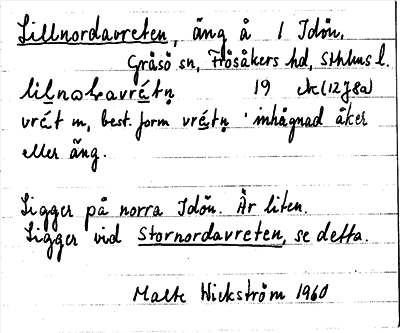 Lillnordavreten, äng å 1 Idön,
Gräsö sn, Frösåkers hd, Sthlms l.
19 ek (12 J 8a)
vrét m, best. form 'inhägnad åker
eller äng.
Ligger på norra Idön. Är liten.
Ligger vid Stornordavreten, se detta.
Malte Wickström 1960